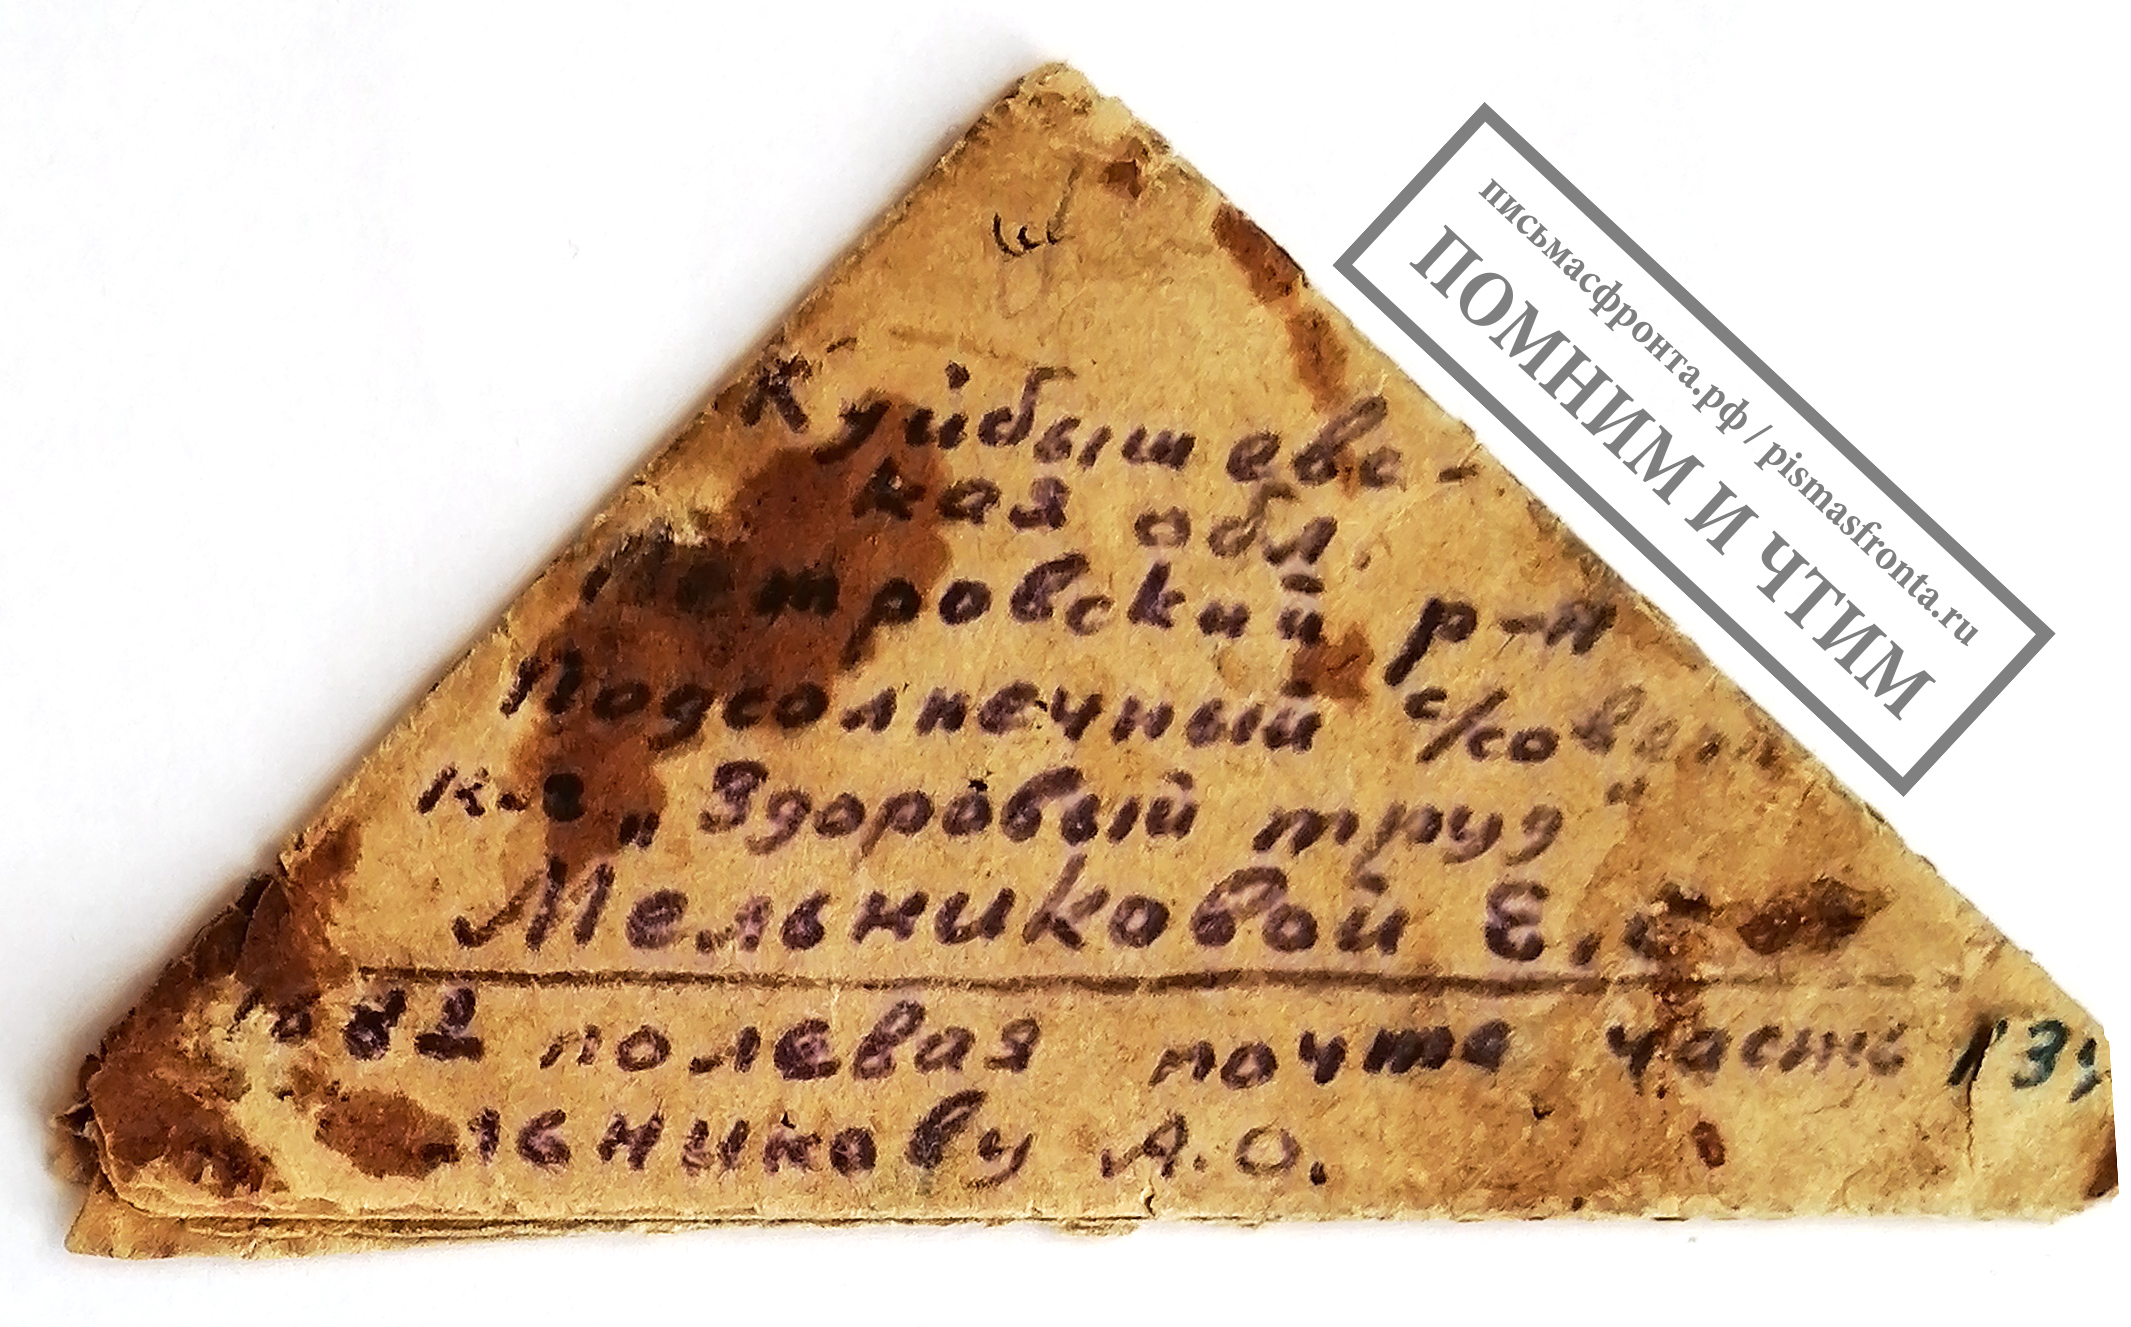 Куйбышевс-
кая обл.
Петровский р-н
Подсолнечный с/совет
к-з „Здоровый труд"
Мельниковой Е.
полевая почта часть
льникову А.О.
письмасфронта.рф / pismasfronta.ru
ПОМНИМ И ЧТИМ